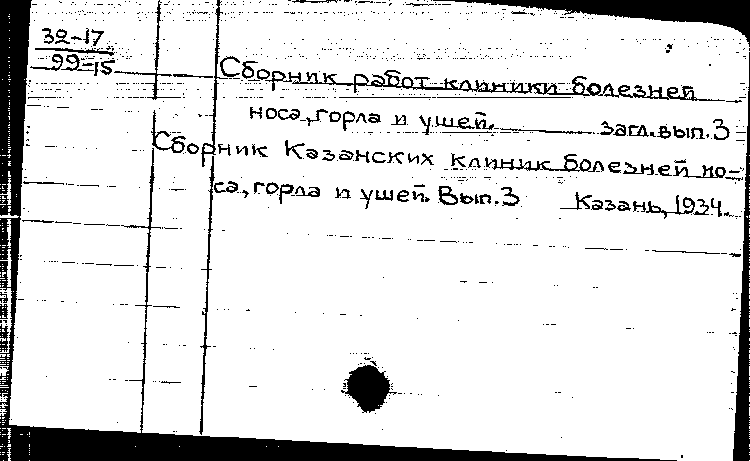 32-17
99-15
Сборник работ клиники болезней
носа, горла и ушей. загл. вып. 3
Сборник Казанских клиник болезней но-
са, горла и ушей. Вып. 3 Казань, 1934.